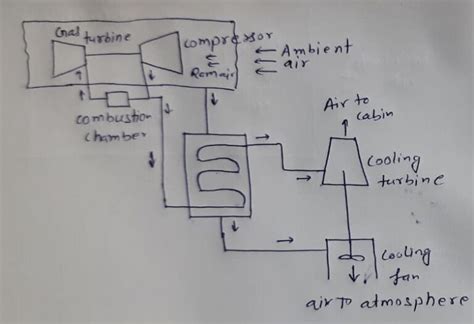 Gas turbine
compressor
Ramair
Ambient
air
combustion
chamber
Air to
cabin
cooling
turbine
cooling
fan
air To atmosphere